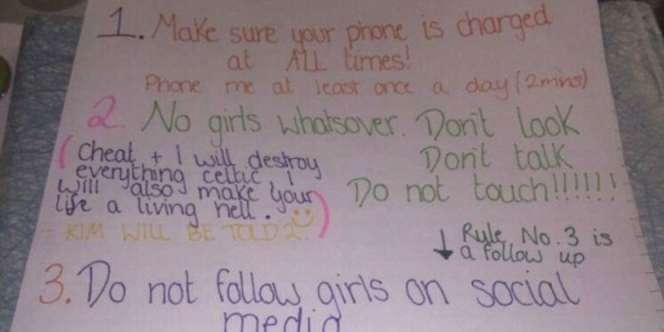 1. Make sure your phone is charged
at ALL times!
Phone me at least once a day (2mins)
2. No girls whatsover. Don't look
Don't talk
Do not touch!!!!!!
(Cheat + I will destroy
everything celtic I
will also make your
life a living hell.)
KIM WILL BE TOLD 2.
↓ Rule No. 3 is
a follow up
3. Do not follow girls on social
media